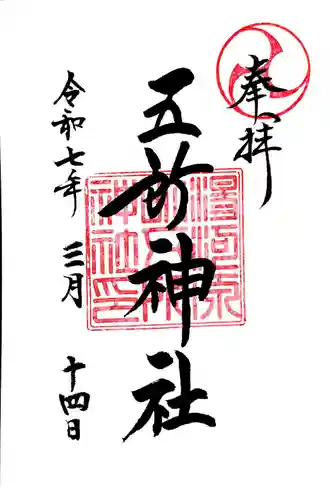 奉拝
五所神社
湯河原
神社印
令和七年 三月 十四日